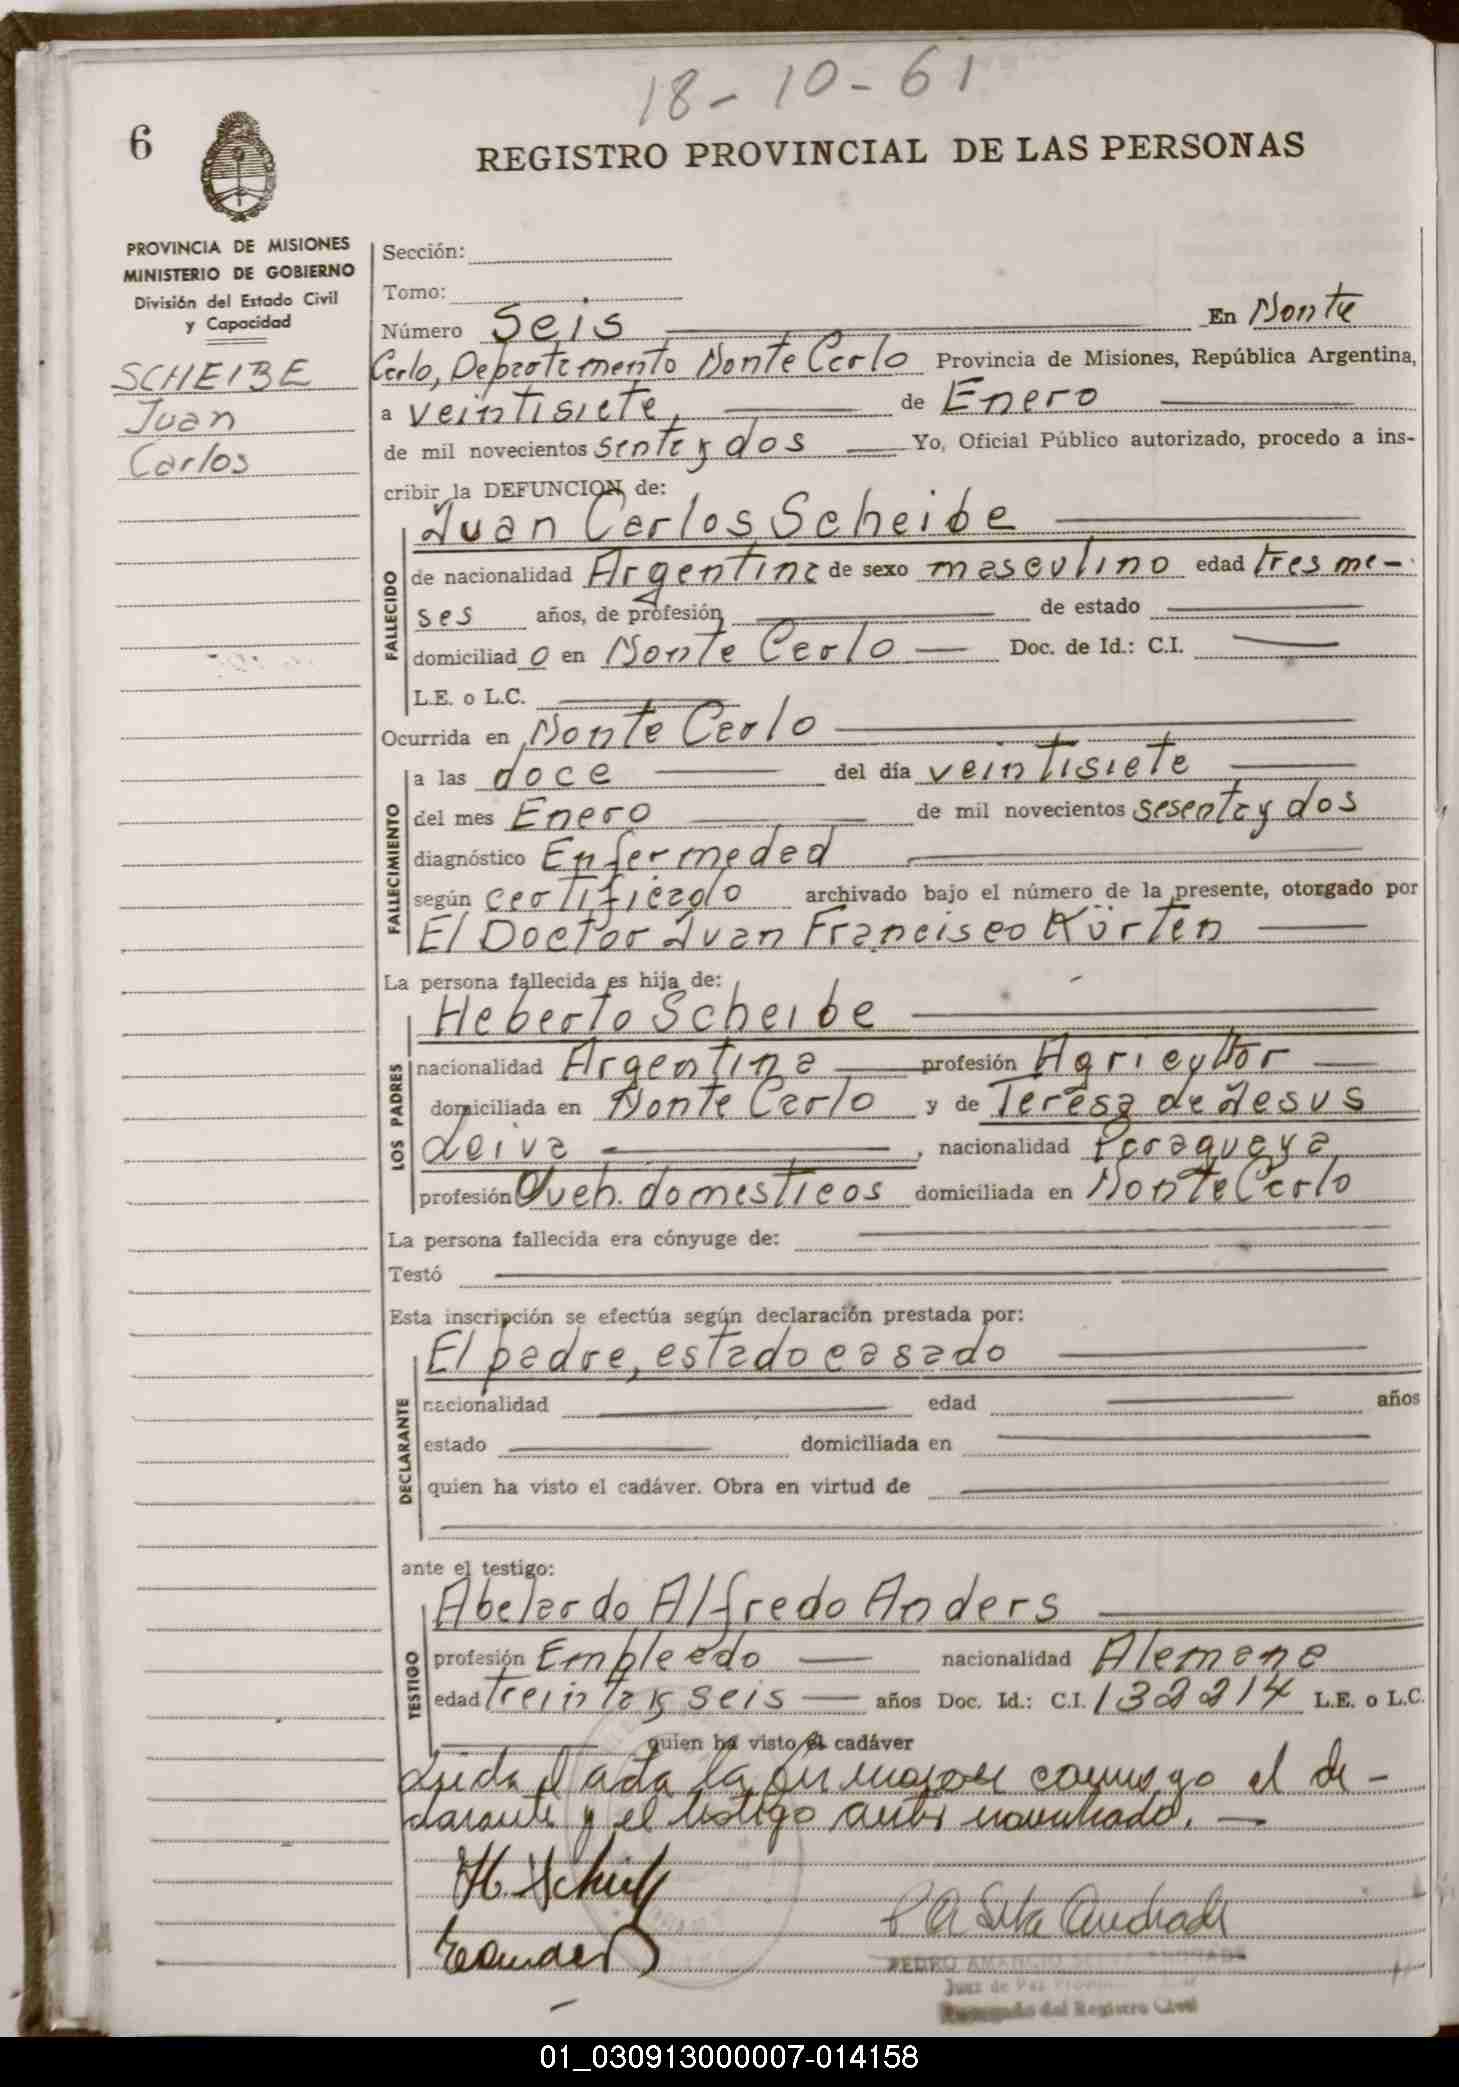 18-10-61
6
REGISTRO PROVINCIAL DE LAS PERSONAS
PROVINCIA DE MISIONES
MINISTERIO DE GOBIERNO
División del Estado Civil
y Capacidad
SCHEIBE
Juan
Carlos
Sección:
Tomo:
Número Seis En Monte
Carlo, Departamento Monte Carlo Provincia de Misiones, República Argentina,
a veintisiete, de Enero
de mil novecientos senta y dos Yo, Oficial Público autorizado, procedo a ins-
cribir la DEFUNCION de:
Juan Carlos Scheibe
FALLECIDO
de nacionalidad Argentina de sexo masculino edad tres me-
ses años, de profesión de estado
domiciliad o en Monte Carlo Doc. de Id.: C.I.
L.E. o L.C.
Ocurrida en Monte Carlo
FALLECIMIENTO
a las doce del día veintisiete
del mes Enero de mil novecientos sesenta y dos
diagnóstico Enfermedad
según certificado archivado bajo el número de la presente, otorgado por
El Doctor Juan Francisco Kürten
La persona fallecida es hija de:
LOS PADRES
Heberto Scheibe
nacionalidad Argentina profesión Agricultor
domiciliada en Monte Carlo y de Teresa de Jesus
Leiva , nacionalidad Paraguaya
profesión Queh. domesticos domiciliada en Monte Carlo
La persona fallecida era cónyuge de:
Testó
Esta inscripción se efectúa según declaración prestada por:
DECLARANTE
El padre, estado casado
nacionalidad edad años
estado domiciliada en
quien ha visto el cadáver. Obra en virtud de
ante el testigo:
TESTIGO
Abelardo Alfredo Anders
profesión Empleado nacionalidad Alemana
edad treinta y seis años Doc. Id.: C.I. 132214 L.E. o L.C.
quien ha visto el cadáver
Leida el acta la firmaron conmigo el de-
clarante y el testigo antes nombrado.
H. Scheib
P A Silva Andrade
PEDRO AMANCIO SILVA ANDRADE
Juez de Paz
Encargado del Registro Civil
01_030913000007-014158